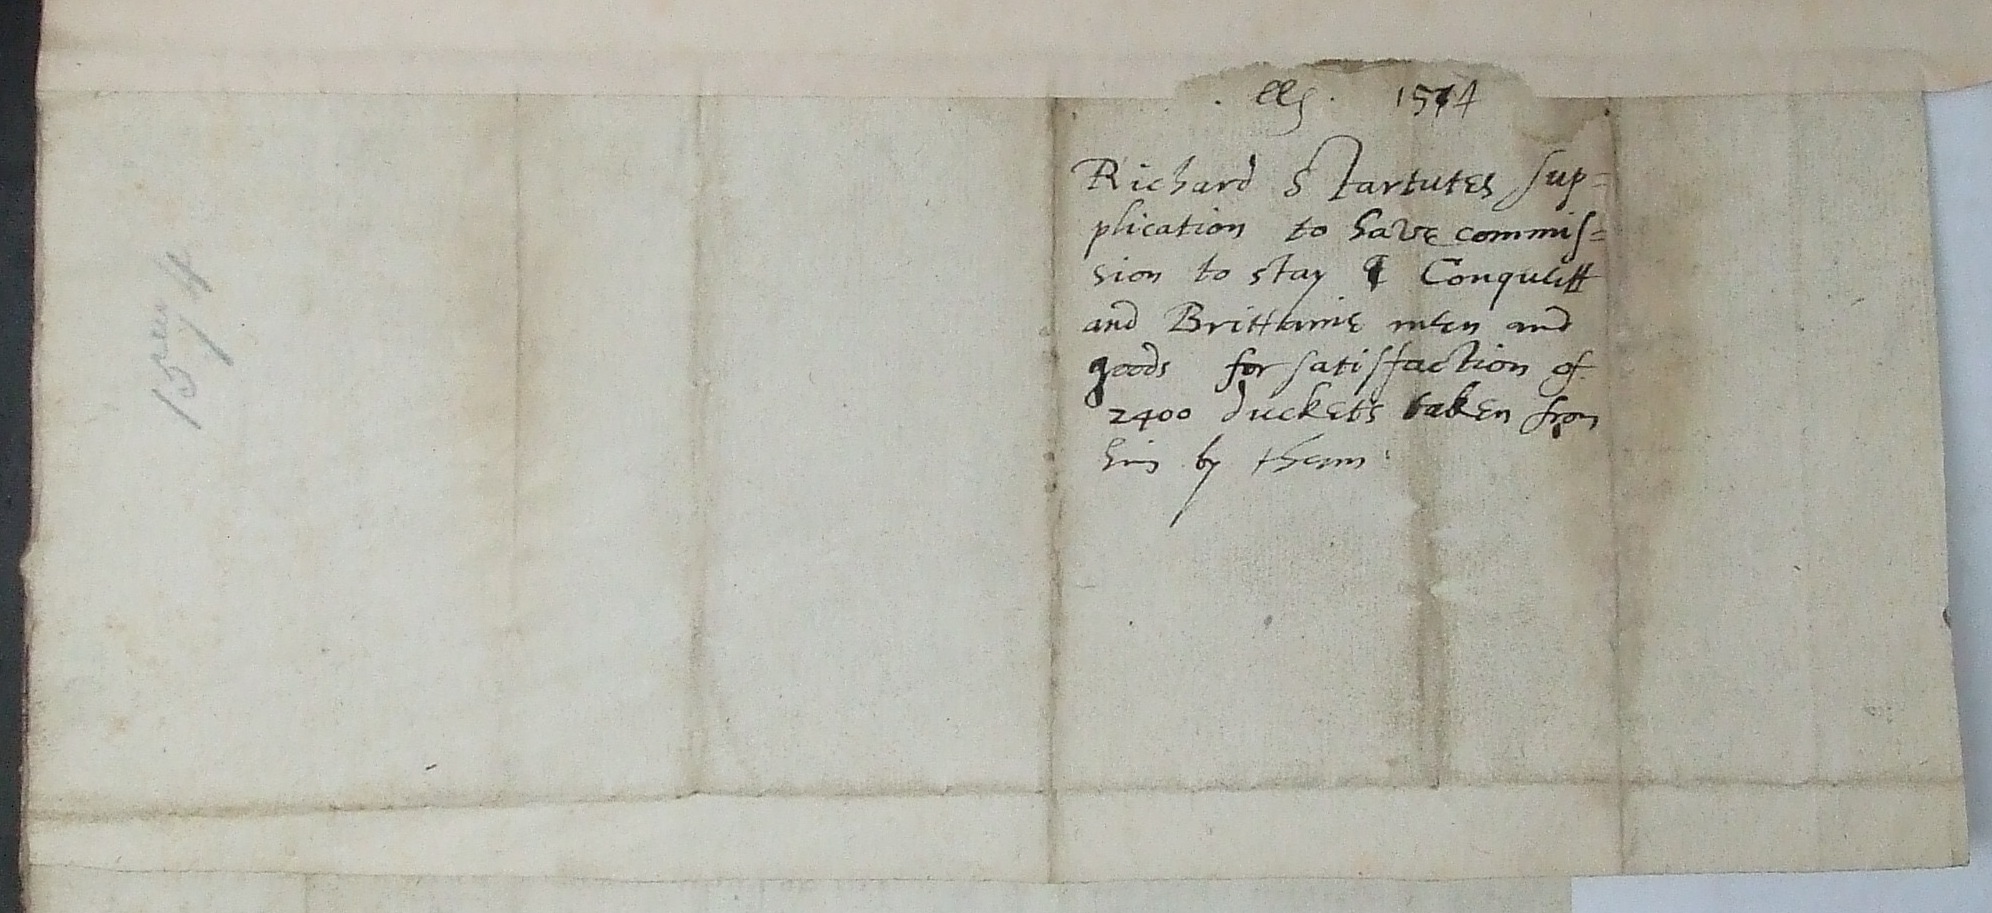 1574
Richard Startutes sup=
plication to have commis=
sion to stay Conquett
and Brittaine men and
goods for satisfaction of
2400 duckets taken from
him by them
1574